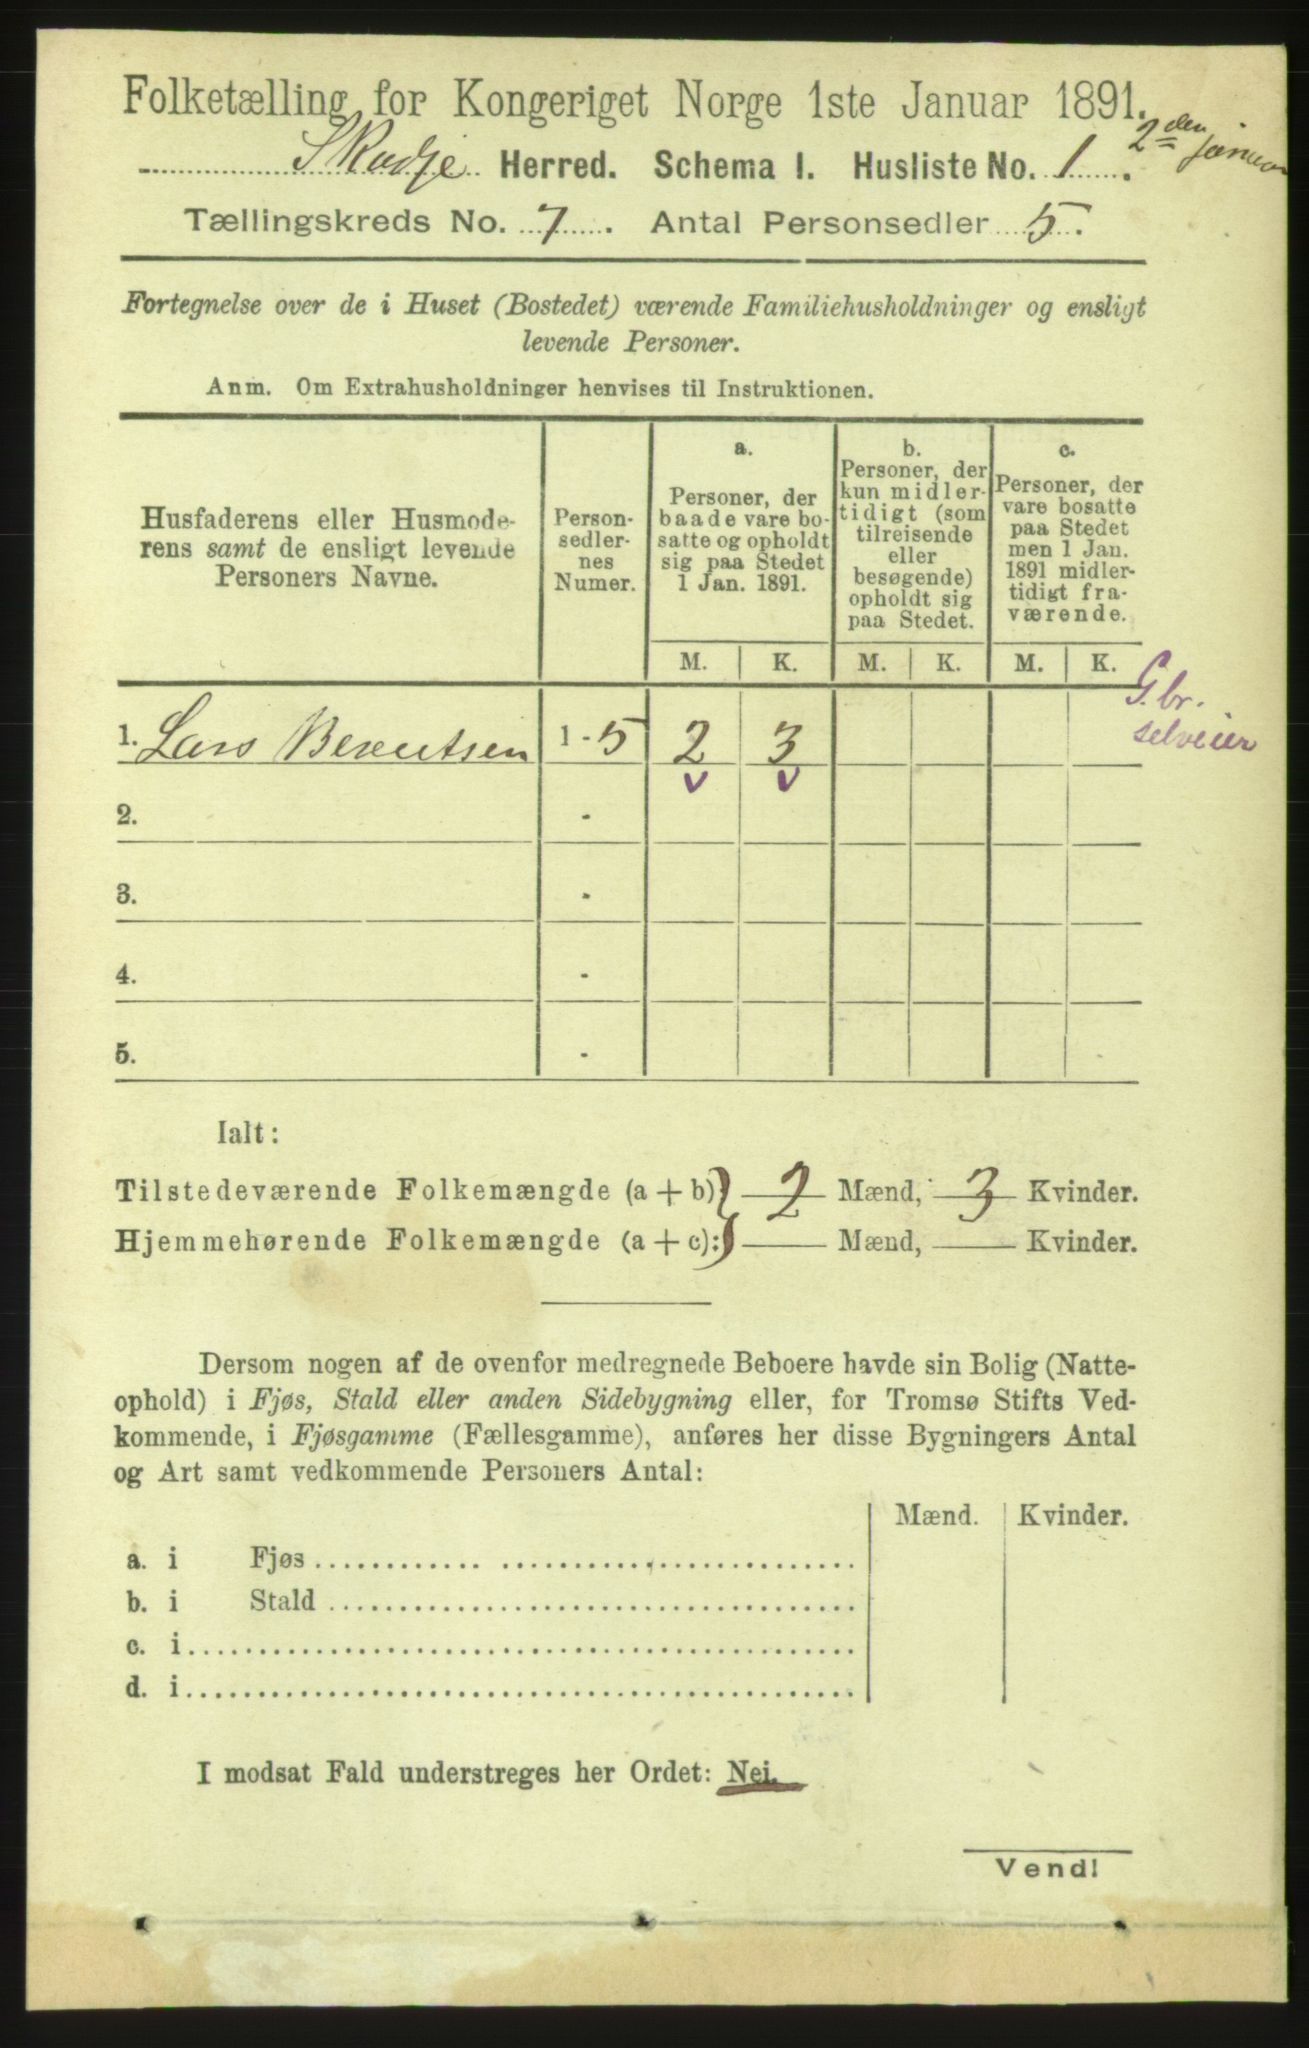 Folketælling for Kongeriget Norge 1ste Januar 1891.
2den januar
Skodje Herred. Schema I. Husliste No. 1.
Tællingskreds No. 7. Antal Personsedler 5.
Fortegnelse over de i Huset (Bostedet) værende Familiehusholdninger og ensligt
levende Personer.
Anm. Om Extrahusholdninger henvises til Instruktionen.
Husfaderens eller Husmode-
rens samt de ensligt levende
Personers Navne.
Person-
sedler-
nes
Numer.
a.
Personer, der
baade vare bo-
satte og opholdt
sig paa Stedet
1 Jan. 1891.
b.
Personer, der
kun midler-
tidigt (som
tilreisende
eller
besøgende)
opholdt sig
paa Stedet.
c.
Personer, der
vare bosatte
paa Stedet
men 1 Jan.
1891 midler-
tidigt fra-
værende.
M. K. M. K. M. K.
1. Lars Berentsen 1 - 5 2 3
G.br.
selveier
v v
2. -
3. -
4. -
5. -
Ialt:
Tilstedeværende Folkemængde (a + b)} 2 Mænd, 3 Kvinder.
Hjemmehørende Folkemængde (a + c):} Mænd, Kvinder.
Dersom nogen af de ovenfor medregnede Beboere havde sin Bolig (Natte-
ophold) i Fjøs, Stald eller anden Sidebygning eller, for Tromsø Stifts Ved-
kommende, i Fjøsgamme (Fællesgamme), anføres her disse Bygningers Antal
og Art samt vedkommende Personers Antal:
Mænd. Kvinder.
a. i Fjøs
b. i Stald
c. i
d. i
I modsat Fald understreges her Ordet: Nei.
Vend!